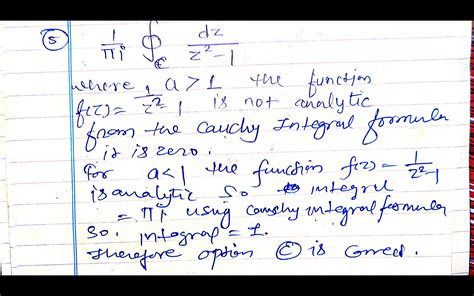 5
1/πi ∮_C dz/(z²-1)
where a > 1 the function
f(z) = 1/(z²-1) is not analytic
from the Cauchy Integral formula
it is zero.
for a<1 the function f(z) = 1/(z²-1)
is analytic So integral
= πi using cauchy integral formula
So. integral = 1.
Therefore option C is correct.